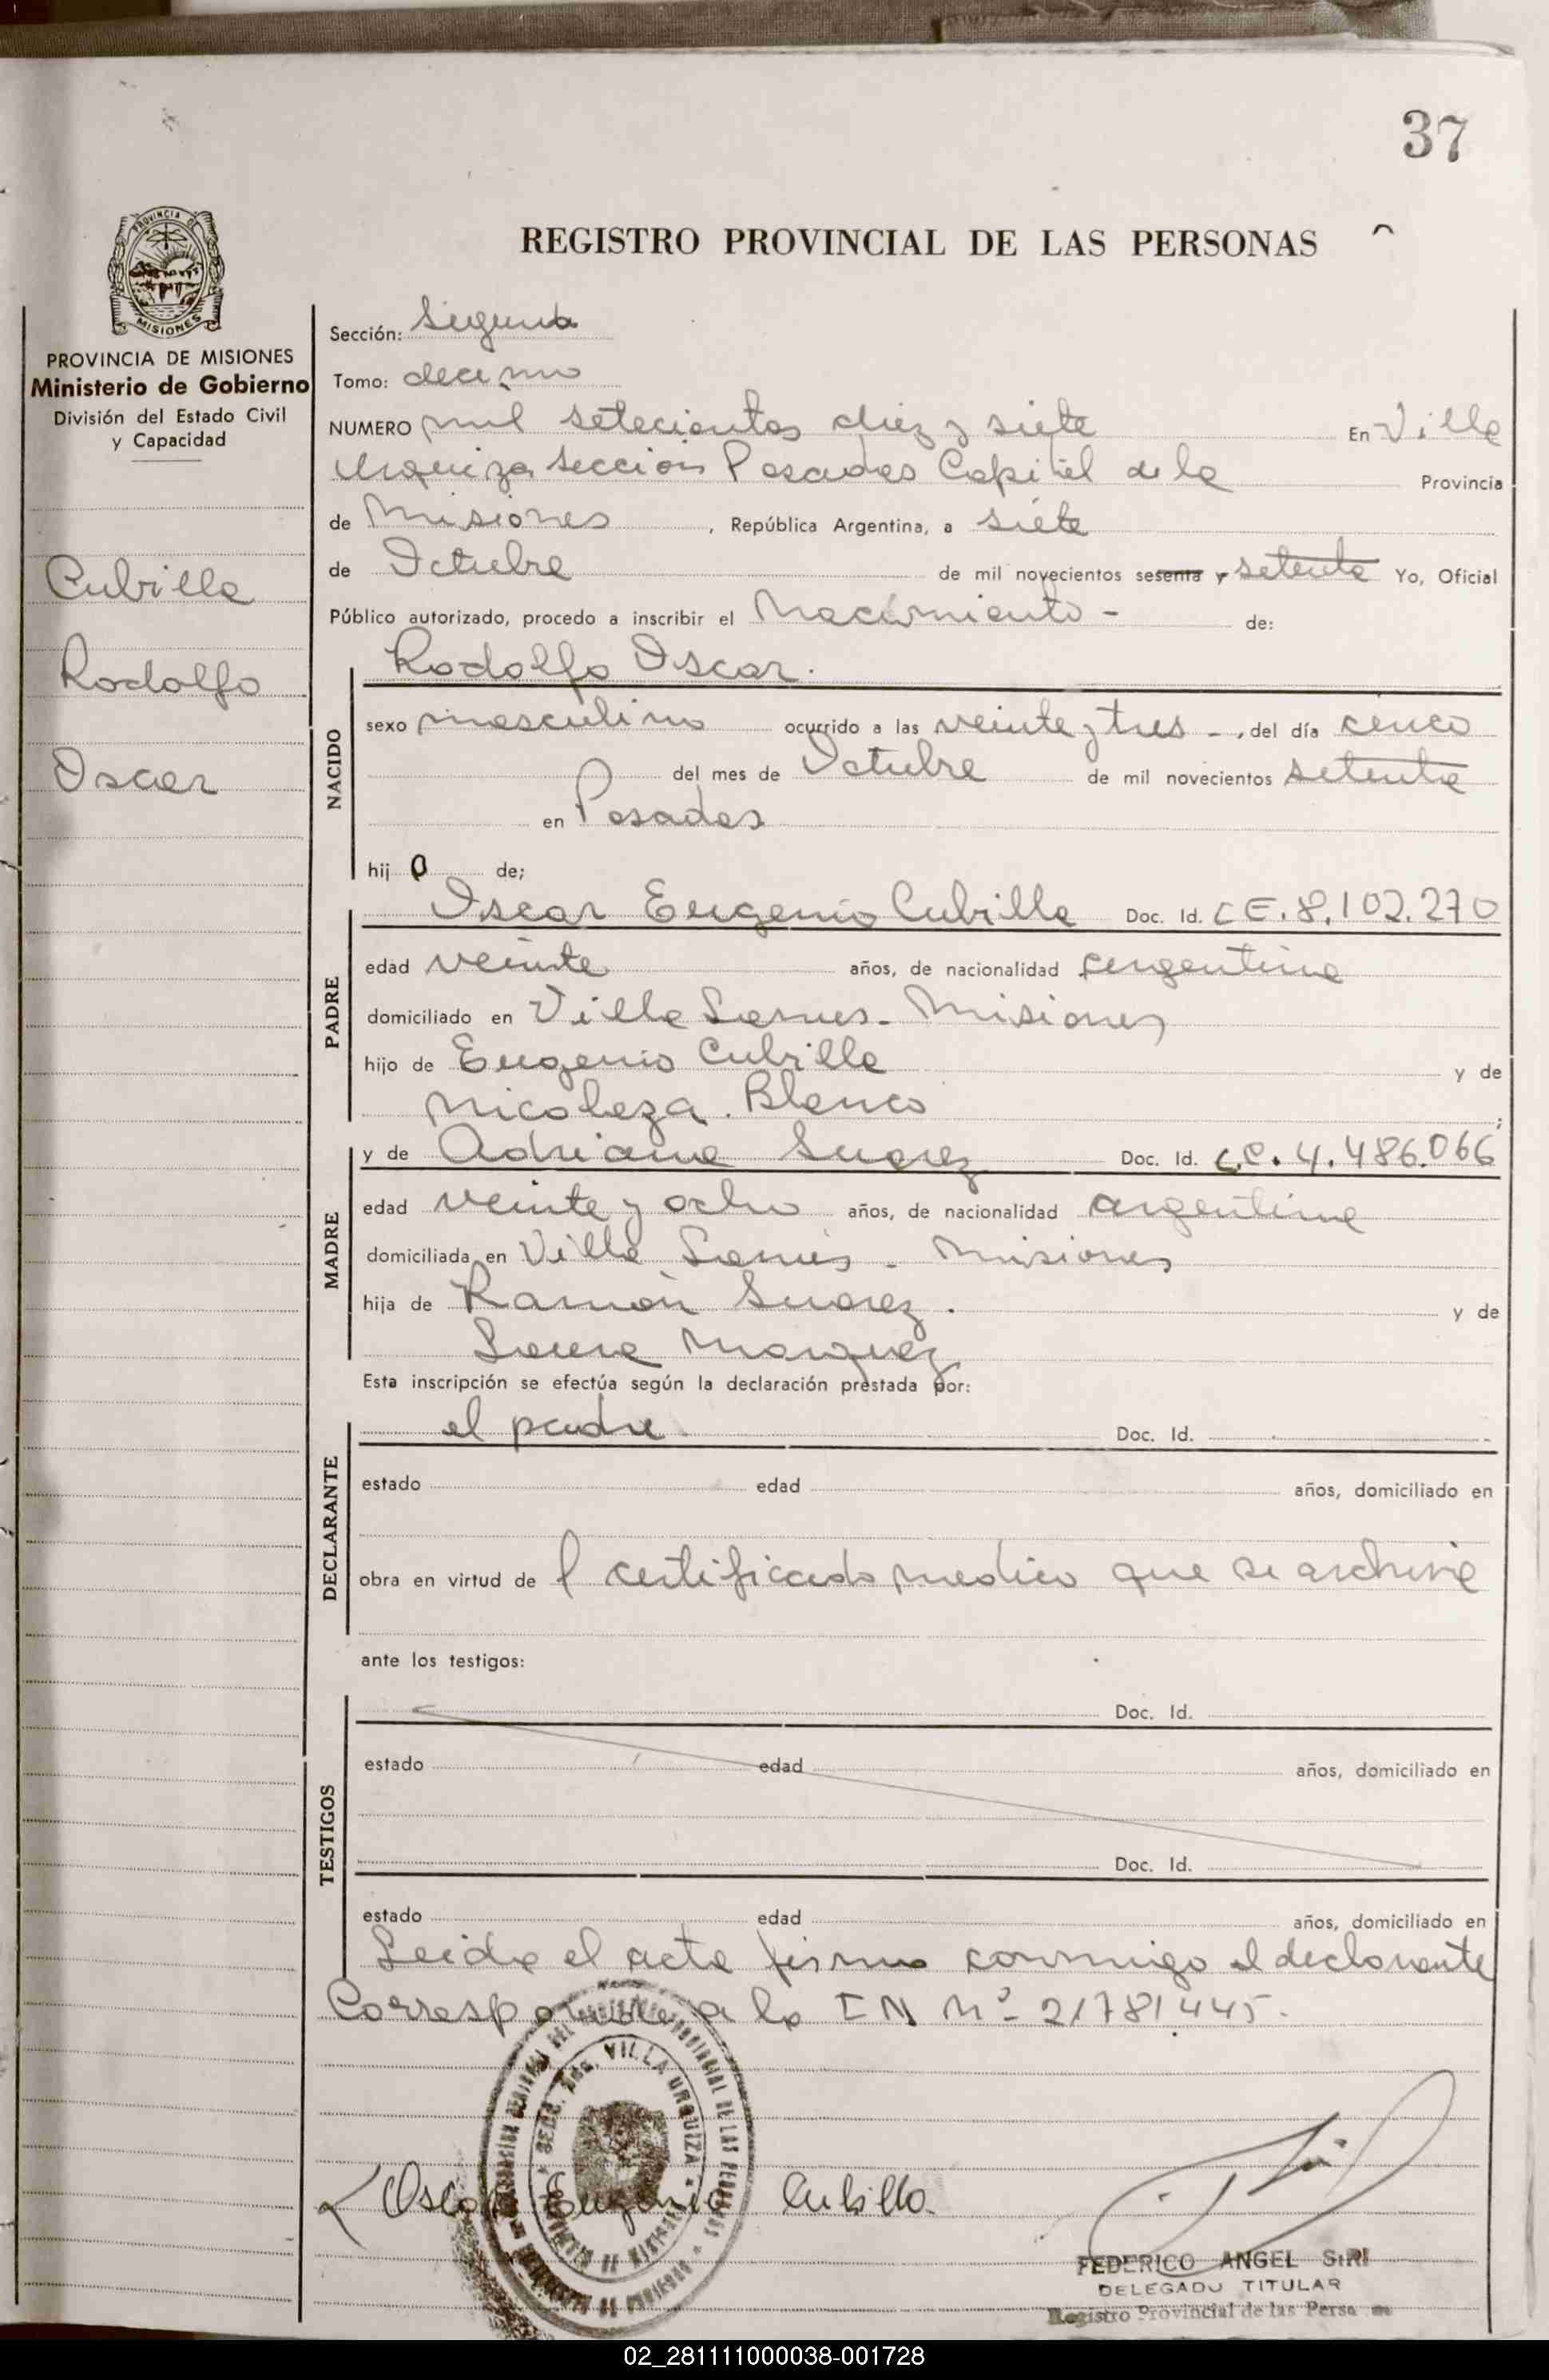 37
REGISTRO PROVINCIAL DE LAS PERSONAS
PROVINCIA DE MISIONES
Ministerio de Gobierno
División del Estado Civil
y Capacidad
Cubilla
Rodolfo
Oscar
Sección: Segunda
Tomo: decimo
NUMERO mil setecientos diez y siete En Villa
Urquiza Seccion Posadas Capital de la Provincia
de Misiones, República Argentina, a siete
de Octubre de mil novecientos sesenta y setenta Yo, Oficial
Público autorizado, procedo a inscribir el Nacimiento - de:
Rodolfo Oscar.
NACIDO
sexo masculino ocurrido a las veinte y tres -, del día cinco
del mes de Octubre de mil novecientos setenta
en Posadas
hij o de;
PADRE
Oscar Eugenio Cubilla Doc. Id. C E. 8.102.270
edad veinte años, de nacionalidad argentina
domiciliado en Villa Lanus - Misiones
hijo de Eugenio Cubilla y de
Nicoleza. Blanco;
MADRE
y de Adriana Suarez Doc. Id. L.C. 4.486.066
edad veinte y ocho años, de nacionalidad argentina
domiciliada en Villa Lanús - Misiones
hija de Ramón Suarez. y de
Laura Marquez
Esta inscripción se efectúa según la declaración prestada por:
DECLARANTE
el padre. Doc. Id.
estado edad años, domiciliado en
obra en virtud de l certificado medico que se archiva
ante los testigos:
TESTIGOS
Doc. Id.
estado edad años, domiciliado en
Doc. Id.
estado edad años, domiciliado en
Leida el acta firma conmigo el declarante
Corresponde a la I N Nº 21781.445.
VILLA URQUIZA
Oscar Eugenio Cubilla.
FEDERICO ANGEL SIRI
DELEGADO TITULAR
Registro Provincial de las Perso
02_281111000038-001728